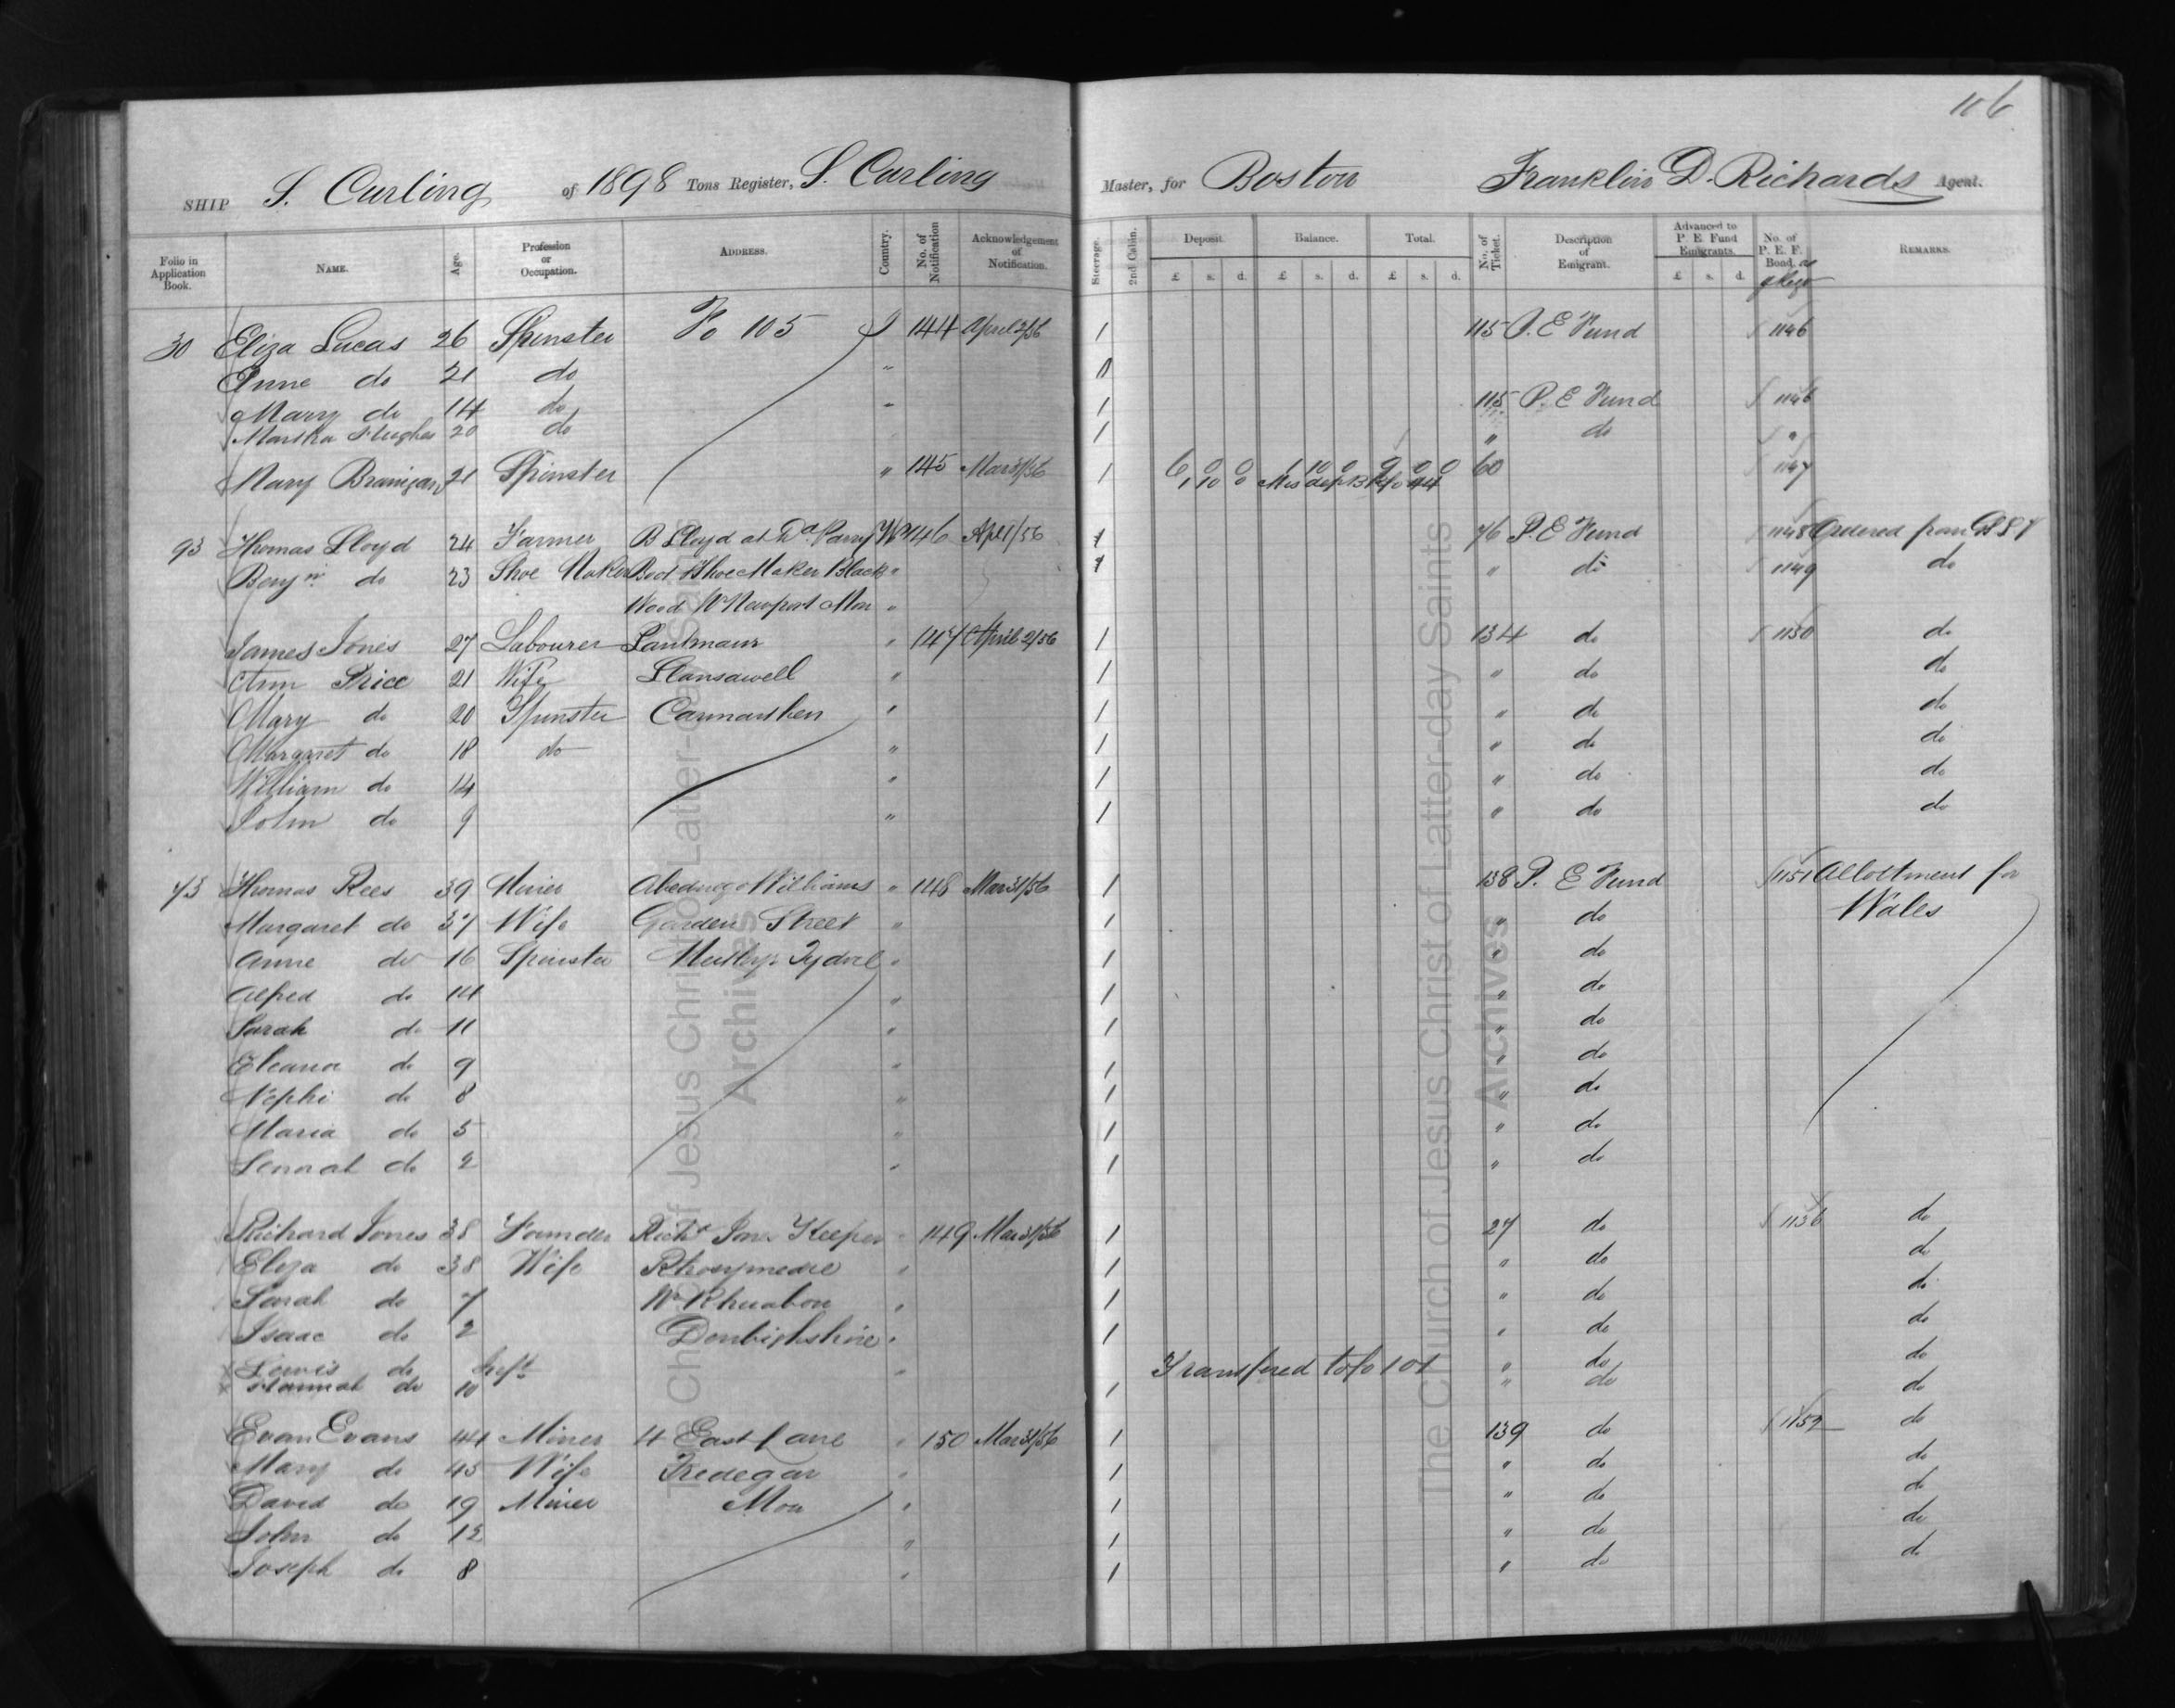 106
SHIP S. Curling of 1898 Tons Register, S. Curling Master, for Boston Franklin D. Richards Agent.
Folio in Application Book. NAME. Age. Profession or Occupation. ADDRESS. Country. No. of Notification Acknowledgement of Notification. Steerage. 2nd Cabin. Deposit. £ s. d. Balance. £ s. d. Total. £ s. d. No. of Ticket. Description of Emigrant. Advanced to P. E. Fund Emigrants. £ s. d. No. of P. E. F. Bond, REMARKS.
30 Eliza Lucas 26 Spinster Fo 105 144 April 2/56 1 115 P. E Fund 1146
Anne do 21 do " 0
Mary do 14 do 1 115 P. E Fund 1146
Martha Hughes 20 do 1 " do "
Mary Branigan 21 Spinster " 145 Mar 31/56 1 6 0 0 1 10 0 9 0 0 60 1147
1 10 0
93 Thomas Lloyd 24 Farmer B Lloyd at Dd. Parry W 146 Apl 1/56 1 76 P. E Fund 1148 Ordered from
Benjn do 23 Shoe Maker Boot & Shoe Maker Black " 1 " do 1149 do
Wood Nr Newport Mon "
James Jones 27 Labourer " 147 April 2/56 1 134 do 1150 do
Ann Price 21 Wife Llansawell " 1 " do do
Mary do 20 Spinster Carmarthen " 1 " do do
Margaret do 18 do " 1 " do do
William do 14 " 1 " do do
John do 9 " 1 " do do
73 Thomas Rees 39 Miner Abednego Williams " 148 Mar 31/56 1 138 P. E Fund 1151 Allottment for
Margaret do 37 Wife Garden Street " 1 " do Wales
Anne do 16 Spinster Merthyr Tydvil " 1 " do
Alfred do 14 " 1 " do
Sarah do 11 " 1 " do
Eleanor do 9 " 1 " do
Nephi do 8 " 1 " do
Maria do 5 " 1 " do
do 2 " 1 " do
Richard Jones 38 Founder Richd Jones Keeper " 149 Mar 31/56 1 27 do 1136 do
Eliza do 38 Wife Rhosymedre " 1 " do do
Sarah do 7 Nr Rhuabon " 1 " do do
Isaac do 2 Denbighshire " 1 " do do
x Lewis do Inft " Transfered to fo 101 " do do
x Hannah do 10 1 " do do
Evan Evans 44 Miner 4 East Lane " 150 Mar 31/56 1 139 do 1152 do
Mary do 45 Wife Tredegar " 1 " do do
David do 19 Miner Mon " 1 " do do
John do 12 " 1 " do do
Joseph do 8 " 1 " do do
The Church of Jesus Christ of Latter-day Saints
Archives
The Church of Jesus Christ of Latter-day Saints
Archives